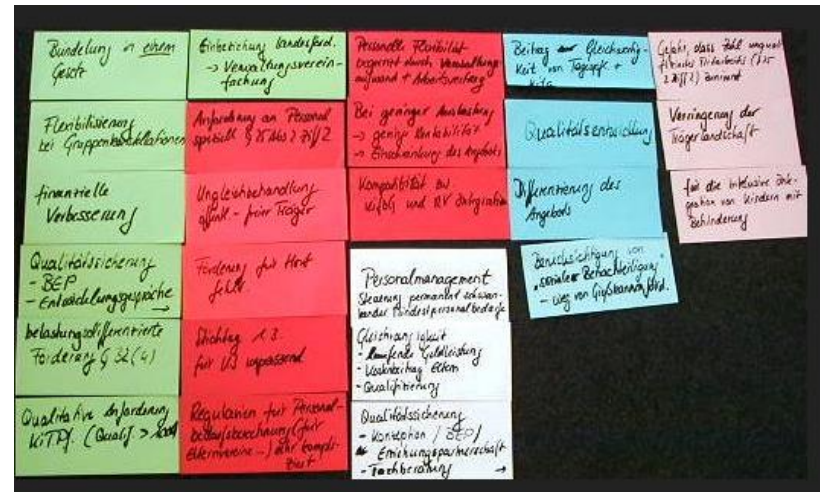 Bündelung in einem
Gesetz
Flexibilisierung
bei Gruppenkonstellationen
finanzielle
Verbesserung
Qualitätssicherung
- BEP
- Entwicklungsgespräche →
belastungsdifferenzierte
Förderung § 32 (4)
Qualitative Anforderung
KiTPf. (Qualif. >
Einbeziehung Landesförd.
→ Verwaltungsverein-
fachung
Anforderung an Personal
speziell § 25 Abs 2 Ziff 2
Ungleichbehandlung
öffentl - freier Träger
Förderung für Hort
fehlt
Stichtag 1.3.
für U3 unpassend
Regularien für Personal-
bedarfsberechnung (für
Elternvereine -) sehr kompli-
ziert
Personelle Flexibilität
begrenzt durch Verwaltungs-
aufwand + Arbeitsvertrag
Bei geringer Auslastung
→ geringe Rentabilität
→ Einschränkung des Angebots
Kompatibilität zw
KiföG und RV Integration
Personalmanagement
Steuerung permanent schwan-
kender Mindestpersonalbedarfe
Gleichrangigkeit
- laufende Geldleistung
- Kostenbeitrag Eltern
- Qualifizierung
Qualitätssicherung
- Konzeption / BEP /
Erziehungspartnerschaft
- Fachberatung →
Beitrag Gleichwertig-
keit von Tagespfl. +
Kita
Qualitätsentwicklung
Differenzierung des
Angebots
Berücksichtigung von
"sozialer Benachteiligung"
- weg von Gießkannenförd.
Gefahr, dass Zahl unquali-
fizierter Mitarbeiter (§ 25
2 Ziff 2) zunimmt
Verringerung der
Trägerlandschaft
für die inklusive Inte-
gration von Kindern mit
Behinderung